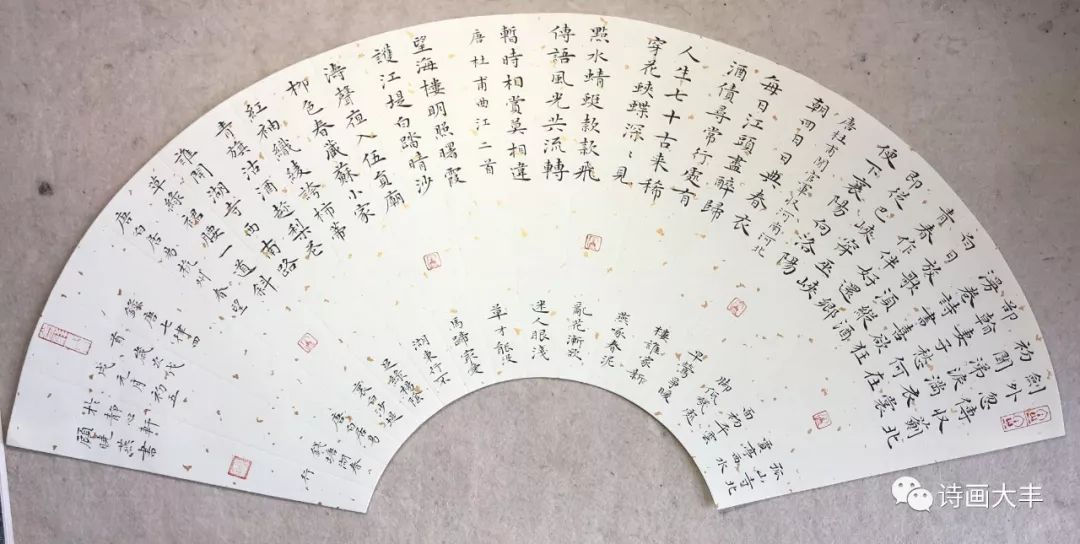 劍外忽傳收薊北
初聞涕淚滿衣裳
卻看妻子愁何在
漫卷詩書喜欲狂
白日放歌須縱酒
青春作伴好還鄉
即從巴峽穿巫峽
便下襄陽向洛陽
唐杜甫聞官軍收河南河北
朝回日日典春衣
每日江頭盡醉歸
酒債尋常行處有
人生七十古来稀
穿花蛺蝶深〻見
點水蜻蜓款款飛
傳語風光共流轉
暫時相賞莫相違
唐杜甫曲江二首
望海樓明照曙霞
護江堤白踏晴沙
濤聲夜入伍員廟
柳色春藏蘇小家
紅袖織綾誇柿蒂
青旗沽酒趁梨花
誰開湖寺西南路
草綠裙腰一道斜
唐白居易杭州春望
孤山寺北
賈亭西水
面初平雲
腳低幾處
早鶯爭暖
樹誰家新
燕啄春泥
亂花漸欲
迷人眼淺
草才能沒
馬蹄最愛
湖東行不
足綠楊陰
裏白沙堤
唐白居易
錢塘湖春
行
錄唐七律四
首歲次戊
戌元月初五
於靜心軒
顧曉燕書
诗画大丰